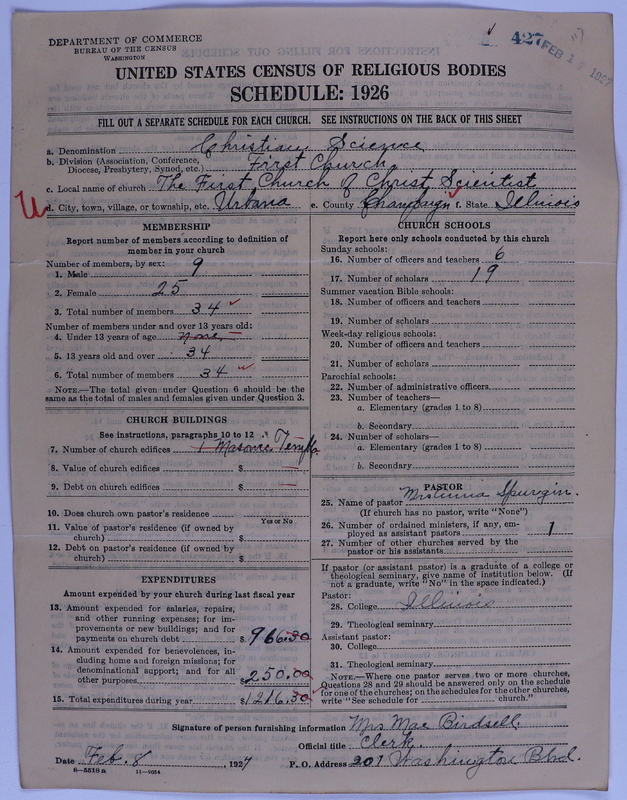 427
FEB 1 1927
DEPARTMENT OF COMMERCE
BUREAU OF THE CENSUS
WASHINGTON
UNITED STATES CENSUS OF RELIGIOUS BODIES
SCHEDULE: 1926
FILL OUT A SEPARATE SCHEDULE FOR EACH CHURCH. SEE INSTRUCTIONS ON THE BACK OF THIS SHEET
a. Denomination Christian Science
b. Division (Association, Conference, Diocese, Presbytery, Synod, etc.) First Church
c. Local name of church The First Church of Christ Scientist
U
d. City, town, village, or township, etc. Urbana e. County Champaign f. State Illinois
MEMBERSHIP
Report number of members according to definition of
member in your church
Number of members, by sex:
1. Male 9
2. Female 25
3. Total number of members 34
Number of members under and over 13 years old:
4. Under 13 years of age none
5. 13 years old and over 34
6. Total number of members 34
NOTE.—The total given under Question 6 should be the
same as the total of males and females given under Question 3.
CHURCH BUILDINGS
See instructions, paragraphs 10 to 12
7. Number of church edifices 1 Masonic Temple
8. Value of church edifices $
9. Debt on church edifices $
10. Does church own pastor's residence?
Yes or No
11. Value of pastor's residence (if owned by
church) $
12. Debt on pastor's residence (if owned by
church) $
EXPENDITURES
Amount expended by your church during last fiscal year
13. Amount expended for salaries, repairs,
and other running expenses; for im-
provements or new buildings; and for
payments on church debt $ 966.30
14. Amount expended for benevolences, in-
cluding home and foreign missions; for
denominational support; and for all
other purposes $ 250.00
15. Total expenditures during year $ 1216.30
CHURCH SCHOOLS
Report here only schools conducted by this church
Sunday schools:
16. Number of officers and teachers 6
17. Number of scholars 19
Summer vacation Bible schools:
18. Number of officers and teachers
19. Number of scholars
Week-day religious schools:
20. Number of officers and teachers
21. Number of scholars
Parochial schools:
22. Number of administrative officers
23. Number of teachers—
a. Elementary (grades 1 to 8)
b. Secondary
24. Number of scholars—
a. Elementary (grades 1 to 8)
b. Secondary
PASTOR
25. Name of pastor Mrs Spurgin.
(If church has no pastor, write "None")
26. Number of ordained ministers, if any, em-
ployed as assistant pastors 1
27. Number of other churches served by the
pastor or his assistants
If pastor (or assistant pastor) is a graduate of a college or
theological seminary, give name of institution below. (If
not a graduate, write "No" in the space indicated.)
Pastor:
28. College Illinois
29. Theological seminary
Assistant pastor:
30. College
31. Theological seminary
NOTE.—Where one pastor serves two or more churches,
Questions 28 and 29 should be answered only on the schedule
for one of the churches; on the schedules for the other churches,
write "See schedule for church."
Signature of person furnishing information Mrs Mae Birdsell
Official title Clerk.
Date Feb. 8, 1927 P. O. Address 201 Washington Blvd.
8—5518 a 11—9054